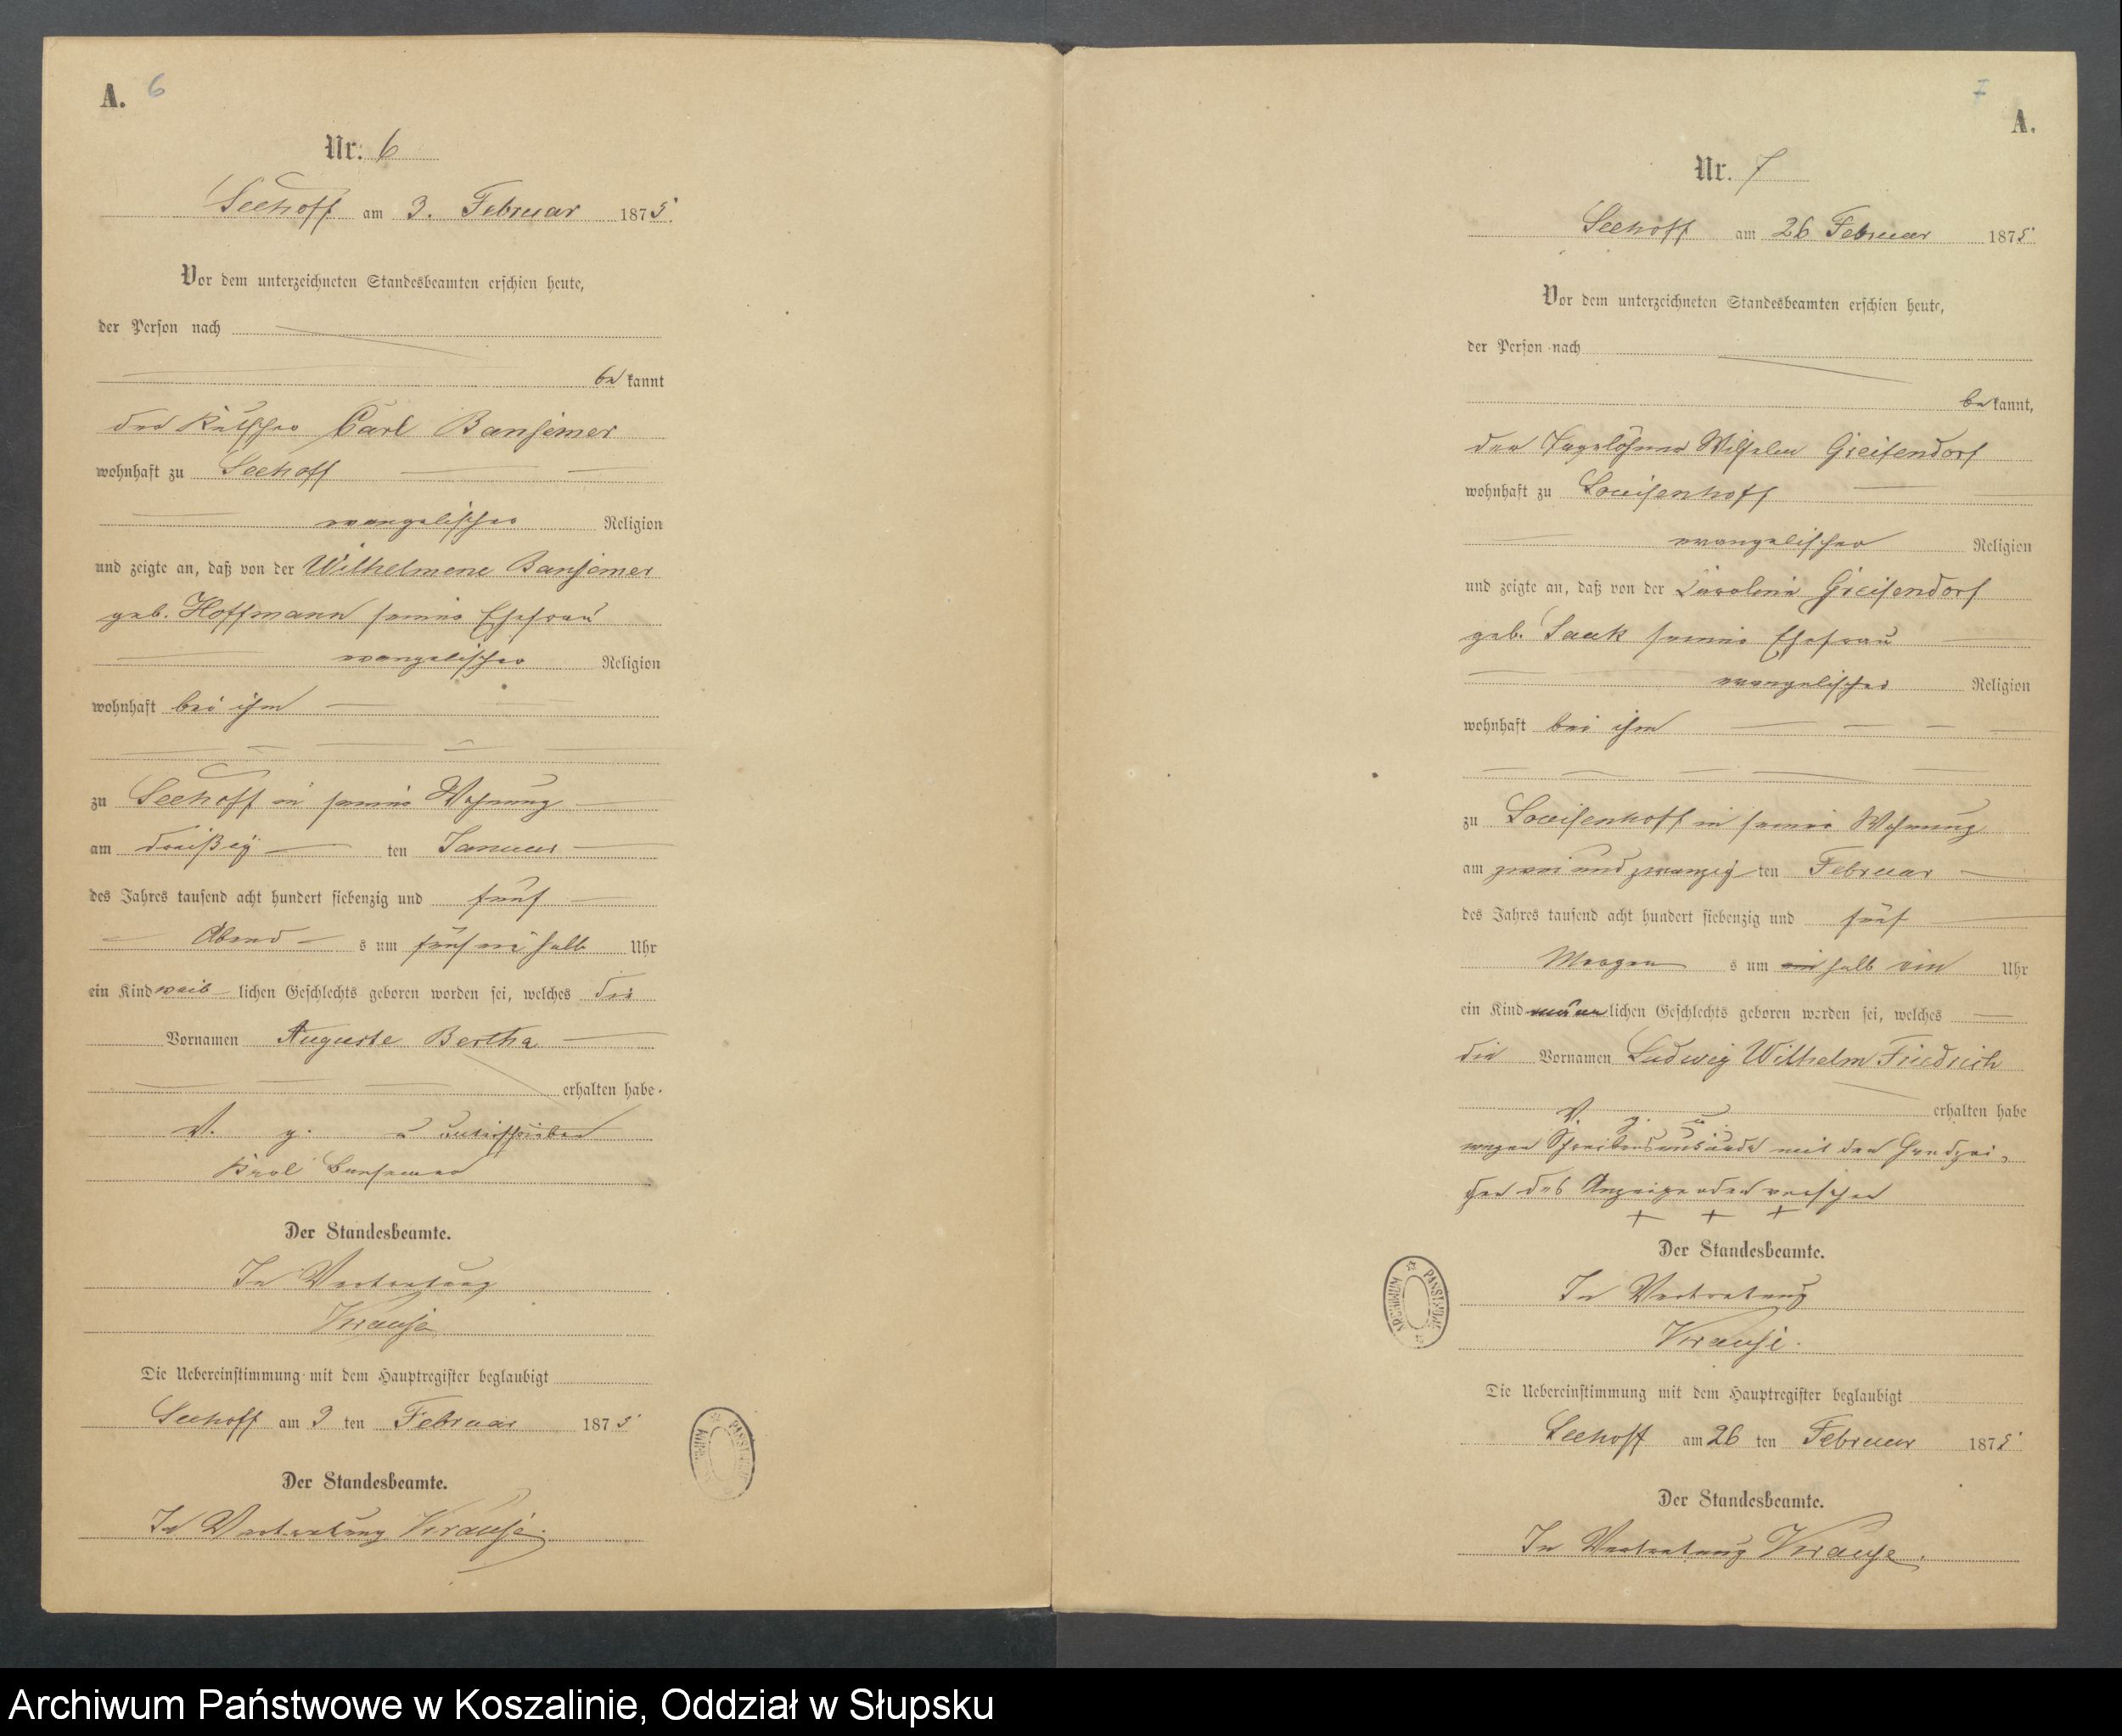 A. 6
Nr. 6
Seehoff am 3. Februar 1875.
Vor dem unterzeichneten Standesbeamten erschien heute,
der Person nach
be kannt
der Kutscher Carl Bansemer
wohnhaft zu Seehoff
evangelischer Religion
und zeigte an, daß von der Wilhelmene Bansemer
geb. Hoffmann seiner Ehefrau
evangelischer Religion
wohnhaft bei ihm
zu Seehoff in seiner Wohnung
am dreißig ten Januar
des Jahres tausend acht hundert siebenzig und fünf
Abend s um fünf ein halb Uhr
ein Kind weib lichen Geschlechts geboren worden sei, welches die
Vornamen Auguste Bertha
erhalten habe.
V. g. u unterschrieben
Karl Bansemer
Der Standesbeamte.
In Vertretung
Krause
Die Uebereinstimmung mit dem Hauptregister beglaubigt
Seehoff am 3 ten Februar 1875
Der Standesbeamte.
In Vertretung Krause.
7
A.
Nr. 7
Seehoff am 26 Februar 1875
Vor dem unterzeichneten Standesbeamten erschien heute,
der Person nach
be kannt,
der Tagelöhner Wilhelm Greifendorf
wohnhaft zu Louisenhoff
evangelischer Religion
und zeigte an, daß von der Caroline Greifendorf
geb. Saak seiner Ehefrau
evangelischer Religion
wohnhaft bei ihm
zu Louisenhoff in seiner Wohnung
am zwei und zwanzig ten Februar
des Jahres tausend acht hundert siebenzig und fünf
Morgen s um halb ein Uhr
ein Kind männ lichen Geschlechts geboren worden sei, welches
die Vornamen Ludwig Wilhelm Friedrich
erhalten habe
V. g. u.
wegen Schreibensunkunde mit den Handzei-
chen des Anzeigenden versehen
+ + +
Der Standesbeamte.
In Vertretung
Krause.
Die Uebereinstimmung mit dem Hauptregister beglaubigt
Seehoff am 26 ten Februar 1875
Der Standesbeamte.
In Vertretung Krause.
ARCHIWUM PAŃSTWOWE
Archiwum Państwowe w Koszalinie, Oddział w Słupsku